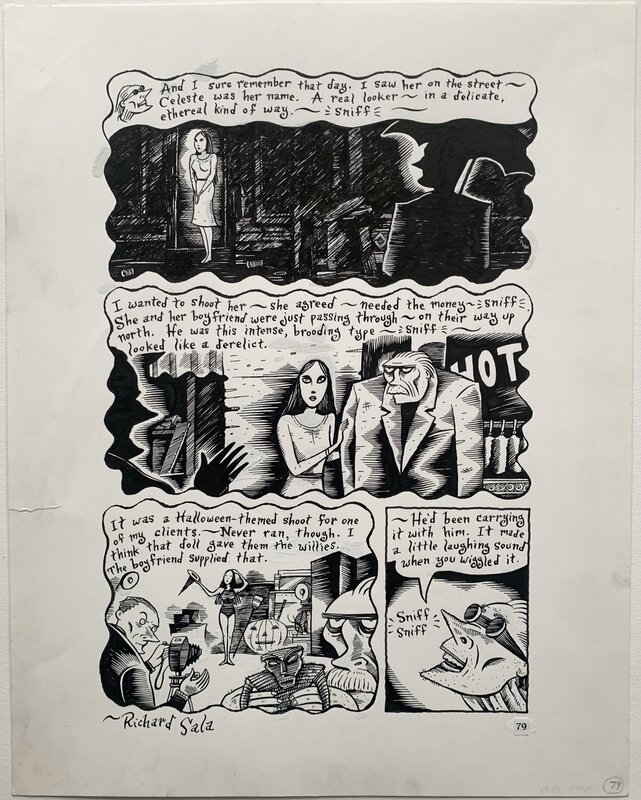 And I sure remember that day. I saw her on the street ~
Celeste was her name. A real looker ~ in a delicate,
ethereal kind of way. ~ sniff
I wanted to shoot her ~ she agreed ~ needed the money ~ sniff
She and her boyfriend were just passing through ~ on their way up
north. He was this intense, brooding type ~ sniff ~
looked like a derelict.
HOT
It was a Halloween-themed shoot for one
of my clients. ~ Never ran, though. I
think that doll gave them the willies.
The boyfriend supplied that.
~ He'd been carrying
it with him. It made
a little laughing sound
when you wiggled it.
Sniff
Sniff
~ Richard Sala
79
79